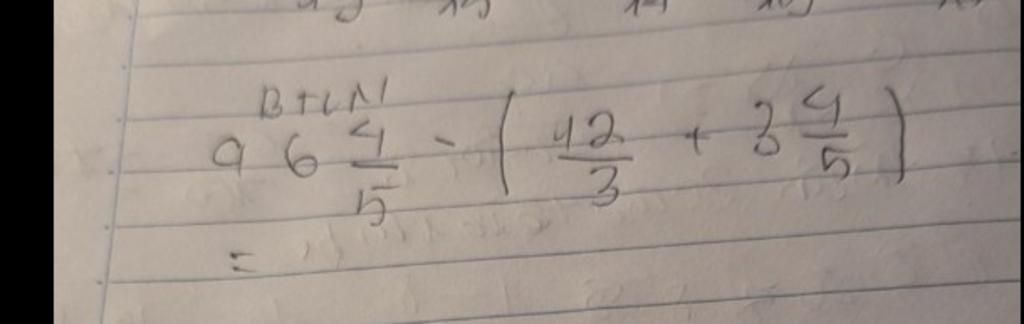 B+LN
9 6 4/5 - ( 42/3 + 3 4/5 )
=